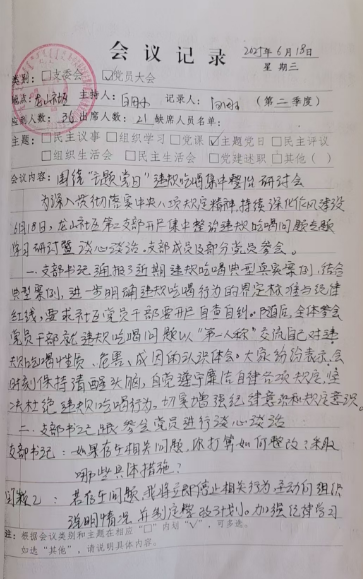 会议记录 2025年6月18日
星期三
类别：□支委会 ☑党员大会
地点：龙山社区 主持人：记录人：（第二季度）
应到人数：36 出席人数：21 缺席人员名单：
主题：□民主议事 □组织学习 □党课 ☑主题党日 □民主评议
□组织生活会 □民主生活会 □党建述职 □其他（ ）
会议内容：围绕“主题党日”违规吃喝集中整治研讨会
为深入贯彻落实中央八项规定精神，持续深化作风建设
6月18日，龙山社区第二支部开展集中整治违规吃喝问题专题
学习研讨暨谈心谈话，支部成员及部分党员参会。
一、支部书记通报了近期违规吃喝典型案例，结合
典型案例，进一步明确违规吃喝行为的界定标准与纪律
红线，要求社区党员干部要开展自查自纠。随后，全体参会
党员干部就违规吃喝问题以“第一人称”交流自己对违
规吃喝性质、危害、成因的认识体会。大家纷纷表示，会
时刻保持清醒头脑，自觉遵守廉洁自律各项规定，坚
决杜绝违规吃喝行为。切实增强纪律意识和规矩意识。
二、支部书记跟参会党员进行谈心谈话
支部书记：如果存在相关问题，你打算如何整改？采取
哪些具体措施？
若存在问题，我将立即停止相关行为，主动向组织
说明情况，并制定整改计划。加强纪律学习
注：根据会议类别和主题在相应“□”内划“√”，可多选。
如选“其他”，请说明具体内容。